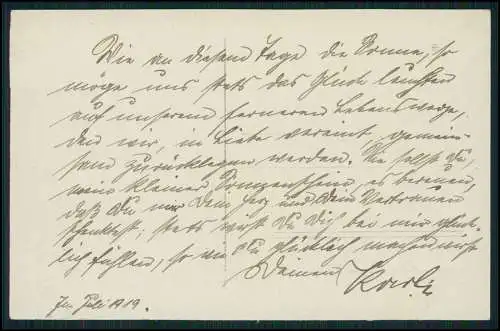 Wie an diesem Tage die Sonne, so
möge uns stets das Glück leuchten
auf unserem ferneren Lebenswege,
den wir, in Liebe vereint, gemein-
sam zurücklegen werden. Nie sollst Du,
mein kleiner Sonnenschein, es bereuen,
daß Du mir Dein Herz und Dein Vertrauen
schenktest; stets wirst Du Dich bei mir glück-
lich fühlen, so wie Du glücklich machen wirst
Deinen Karl
Im Juli 1919.